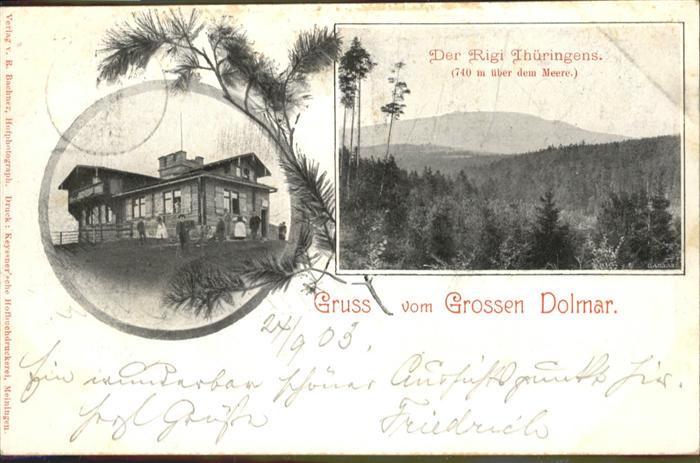 Der Rigi Thüringens.
(740 m über dem Meere.)
Gruss vom Grossen Dolmar.
24/9 03.
Ein wunderbar schöner Aussichtspunkt hier.
herzl Grüße
Friedrich
Verlag v. R. Bachner, Hofphotograph. Druck: Keyssner'sche Hofbuchdruckerei, Meiningen.